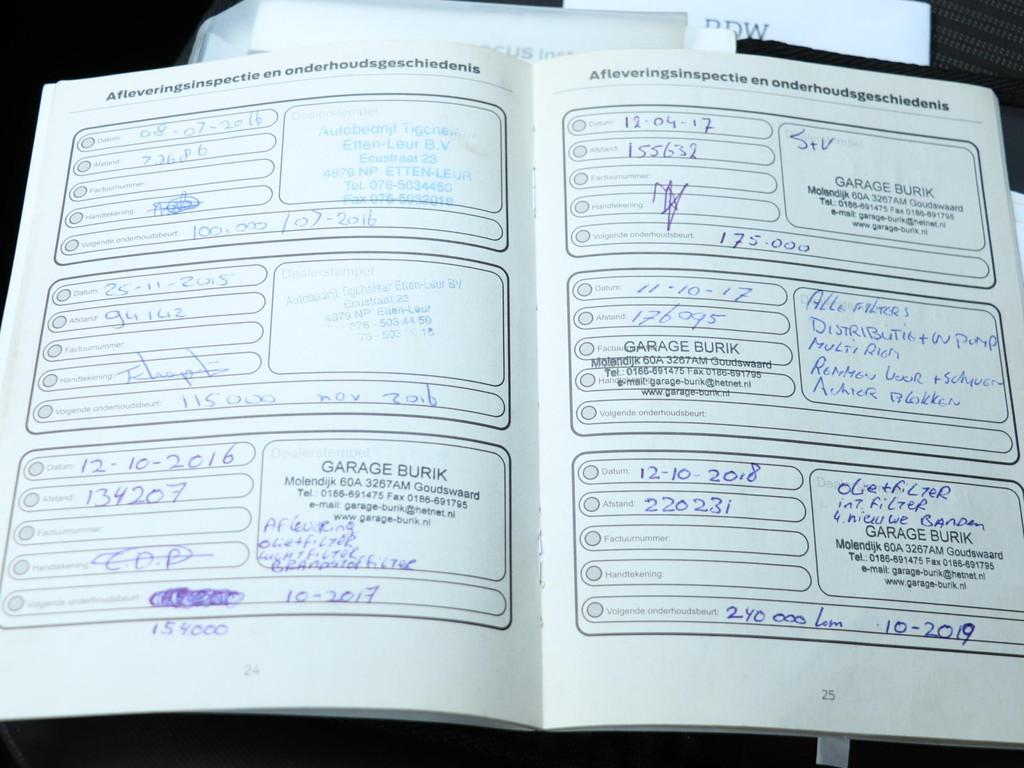 RDW
Afleveringsinspectie en onderhoudsgeschiedenis
Datum: 08-07-2016
Afstand:
Factuurnummer:
Handtekening:
Volgende onderhoudsbeurt: 100.000 / 07-2016
Dealerstempel
Etten-Leur B.V
Ecustraat 23
4879 NP ETTEN-LEUR
Tel. 076-5034450
Fax 076-5032018
Datum: 25-11-2015
Afstand: 94142
Factuurnummer:
Handtekening:
Volgende onderhoudsbeurt: 115000 nov 2016
Dealerstempel
Autobedrijf Tigchelaar Etten-Leur BV
Ecustraat 23
4879 NP Etten-Leur
076 - 503 44 50
Datum: 12-10-2016
Afstand: 134207
Factuurnummer:
Handtekening:
Volgende onderhoudsbeurt: 10-2017
154000
Dealerstempel
GARAGE BURIK
Molendijk 60A 3267AM Goudswaard
Tel.: 0186-691475 Fax 0186-691795
e-mail: garage-burik@hetnet.nl
www.garage-burik.nl
Aflevering
olie+filter
luchtfilter
brandstoffilter
24
Afleveringsinspectie en onderhoudsgeschiedenis
Datum: 12-04-17
Afstand: 155632
Factuurnummer:
Handtekening:
Volgende onderhoudsbeurt: 175.000
GARAGE BURIK
Molendijk 60A 3267AM Goudswaard
Tel.: 0186-691475 Fax 0186-691795
e-mail: garage-burik@hetnet.nl
www.garage-burik.nl
Datum: 11-10-17
Afstand: 176095
GARAGE BURIK
Molendijk 60A 3267AM Goudswaard
Tel.: 0186-691475 Fax 0186-691795
e-mail: garage-burik@hetnet.nl
www.garage-burik.nl
Volgende onderhoudsbeurt:
ALLE FILTERS
DISTRIBUTIE + W POMP
MULTI RIEM
REMMEN VOOR + SCHIJVEN
ACHTER BLOKKEN
Datum: 12-10-2018
Afstand: 220231
Factuurnummer:
Handtekening:
Volgende onderhoudsbeurt: 240 000 km 10-2019
olie+filter
int. filter
4. nieuwe banden
GARAGE BURIK
Molendijk 60A 3267AM Goudswaard
Tel.: 0186-691475 Fax 0186-691795
e-mail: garage-burik@hetnet.nl
www.garage-burik.nl
25